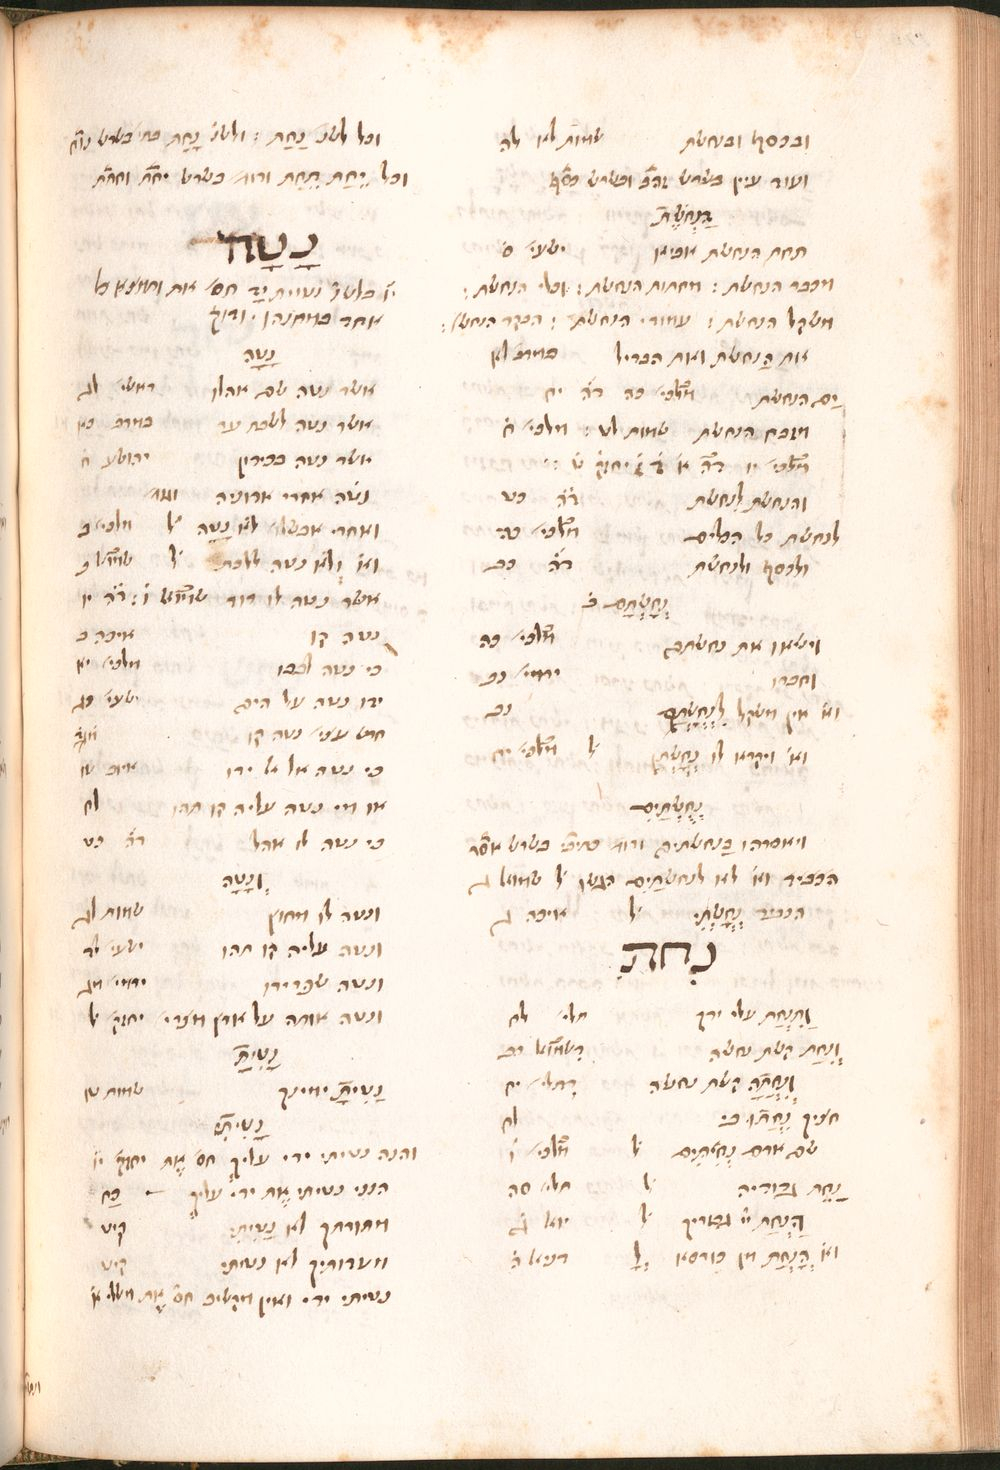 ובכסף ובנחשת שמות לא לה
ועוד עיין בשרש זהב ובשרש כסף
בַּנְחֹשֶׁת
תחת הנחשת אביא ישעי ס
מכבר הנחשת : מחתות הנחשת : וכלי הנחשת :
משקל הנחשת : עמודי הנחשת : הבקר הנחשת :
את הַנחשת ואת הברזל במדב לא
ים הנחשת מלכי כה
מזבח הנחשת שמות לט : מלכי
והנחשת לנחשת כט
לנחשת כל הכלים מלכי כה
ולכסף ולנחשת כב
נְחֻשְׁתָּם ב
וישאו את נחשתם מלכי כה
וחברו ירמי נב
וא אין משקל לנְחֻשְׁתָּם נב
וא ויקרא לו נְחֻשְׁתָּן ל מלכי יח
נְחֻשְׁתַּיִם
ויאסרהו בַנחשתים בשרש אסר
הכביד וא לא לנחשתַיִם הגשו ל שמואל ג
הכביד נְחָשְׁתִּי ל איכה ג
נָחִת
וַתִּנְחַת עלי ידך תלי לח
וְנִחַת קשת נחשה שמואל כב
וְנִחֲתָה קשת נחשה תלי יח
חציך נִחֲתוּ בי לח
שם ארם נְחִתִּים ל מלכי ו
נַחֵת גדודיה ל תלי סה
הַנְחַת יי גבוריך ל יואל ד
וא הָנְחַת מן כורסא ל דניאל ה
וכל לשנ נַחַת : ולשנ נָחַת בשרש נוח
וכל יֵחַת תֵּחַת בשרש יחת וחתת
נָטָה
בלשנ נטיית יָד חס את ומוצא כל
אחר במחנהו
נָטָה
אשר נטה שם אהלו ראשי לג
אשר נטה לשבת ער במדב כא
אשר נטה בכידון יהושע ח
נטה אחרי אדוניה
ואחרי אבשל לא נָטָה ל מלכי ב
וא וְלא נטה ללכת ל שמואל ב
אשר נטה לו דוד שמואל ו : יו
נטה קו איכה ב
כי נטה לבבו מלכי יא
ידו נטה על הים ישעי כג
חרש עצי נטה קו מד
כי נטה אל אל ידו איוב טו
או מי נטה עליה קו תהו לח
כי נטה לו אהל כט
וְנָטָה
ונטה לו מחוץ שמות לג
ונטה עליה קו תהו ישעי לד
ונטה שפרירו ירמי מג
ונטה אותה על ארץ מצרי יחזק ל
נָטִיתָ
נָטִיתָ ימינך שמות טו
נָטִיתִי
והנה נטיתי ידי עליך חס אֶת יחזק יו
הנני נטיתי אֶת ידי עליך כה
מתורתך לא נָטִיתִי קיט
מעדותיך לא נטיתי קיט
נטיתי ידי ואין מקשיב חס אֶת משלי א